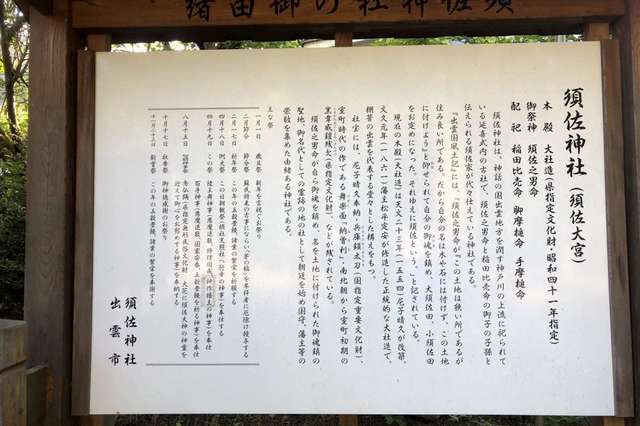 須佐神社の御由緒
須佐神社(須佐大宮)
本殿 大社造(県指定文化財・昭和四十一年指定)
御祭神 須佐之男命
配祀 稲田比売命 脚摩槌命 手摩槌命
須佐神社は、神話の国出雲地方を潤す神戸川の上流に祀られて
いる延喜式内の古社で、須佐之男命と稲田比売命の御子の子孫と
伝えられる須佐家が代々仕えている神社である。
『出雲国風土記』には、「須佐之男命が『この土地は狭い所であるが
住み良い所である。だから自分の名は木や石には付けず、この土地
に付けよう』と仰せられて自分の御魂を鎮め、大須佐田、小須佐田
をお定めになった。それゆえに須佐という。」と記されている。
現在の本殿(大社造)は天文二十三年(一五五四)尼子晴久が改築、
文久元年(一八六一)藩主松平定安が修造した正統的な大社造で、
棚普の出雲を代表する堂々とした構えをもつ。
社宝には、尼子晴久奉納・兵庫鎖太刀(国指定重要文化財)、
室町時代の作である舞楽面「納曽利」、南北朝から室町初期の
黒韋威鎧残欠(県指定文化財)、などが残されている。
須佐之男命が自ら御魂を鎮め、名を土地に付けられた御魂鎮の
聖地、御名代としての霊跡の地の社として朝廷を始め国守、藩主等の
崇敬を集めた由緒ある神社である。
主な祭
一月一日 歳旦祭 新年を言祝ぐお祭り
二月節分 節分祭
二月十七日 祈年祭 この年の五穀豊穣、諸業の繁栄を祈願する
四月十八日 例大祭
四月十九日
八月十五日
十月十七日 秋季祭 御神徳感謝のお祭り
十一月二十三日 新嘗祭 この年の五穀豊穣、諸業の繁栄を奉謝する
須佐神社
出雲市